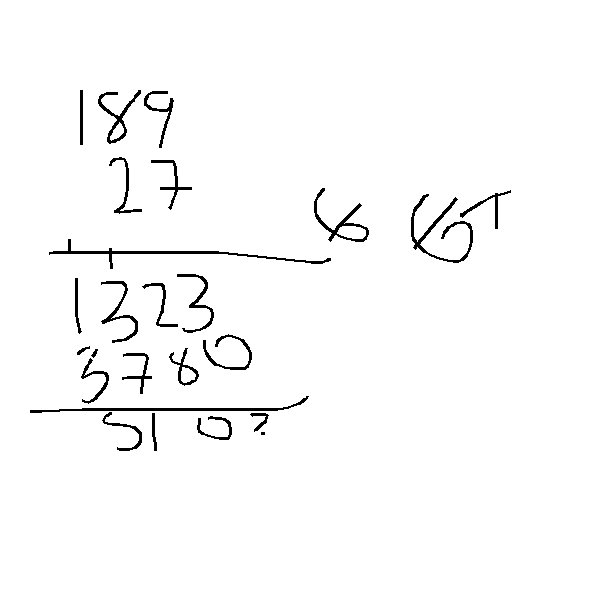 189
27
1323
3780
510?